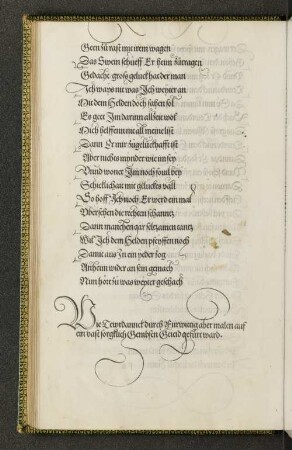 Geen zu rast mit irem wagen
Das Swein schueff Er heim zutragen
Gedacht groß geluckh hat der man
Ich ways nit was Ich weyter an
Mit dem Helden doch fahen sol
Es geet Im darinn allzeit wol
Mich helffen nit all meine list
Dann Er mir zugeluckhafft ist
Aber nichts mynder wie im sey
Unnd wonet Im noch souil bey
Schicklichait mit gluckes vall
So hoff Ich noch Er werd ein mal
Übersehen die rechten schanntz
Dann manichen gar seltzamen tantz
Will Ich dem Helden pfeiffen noch
Damit aus Zn ein yeder zog
Anheim wider an sein gemach
Nun hört zu was weyter geschach
Wie Tewrdannck durch Fürwittig aber malen auf
ein vast sorgklich Gembsen Geiaid gefürt ward.